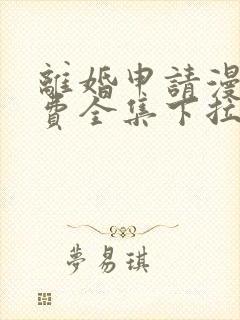 離婚申請漫
費全集下拉
夢易琪